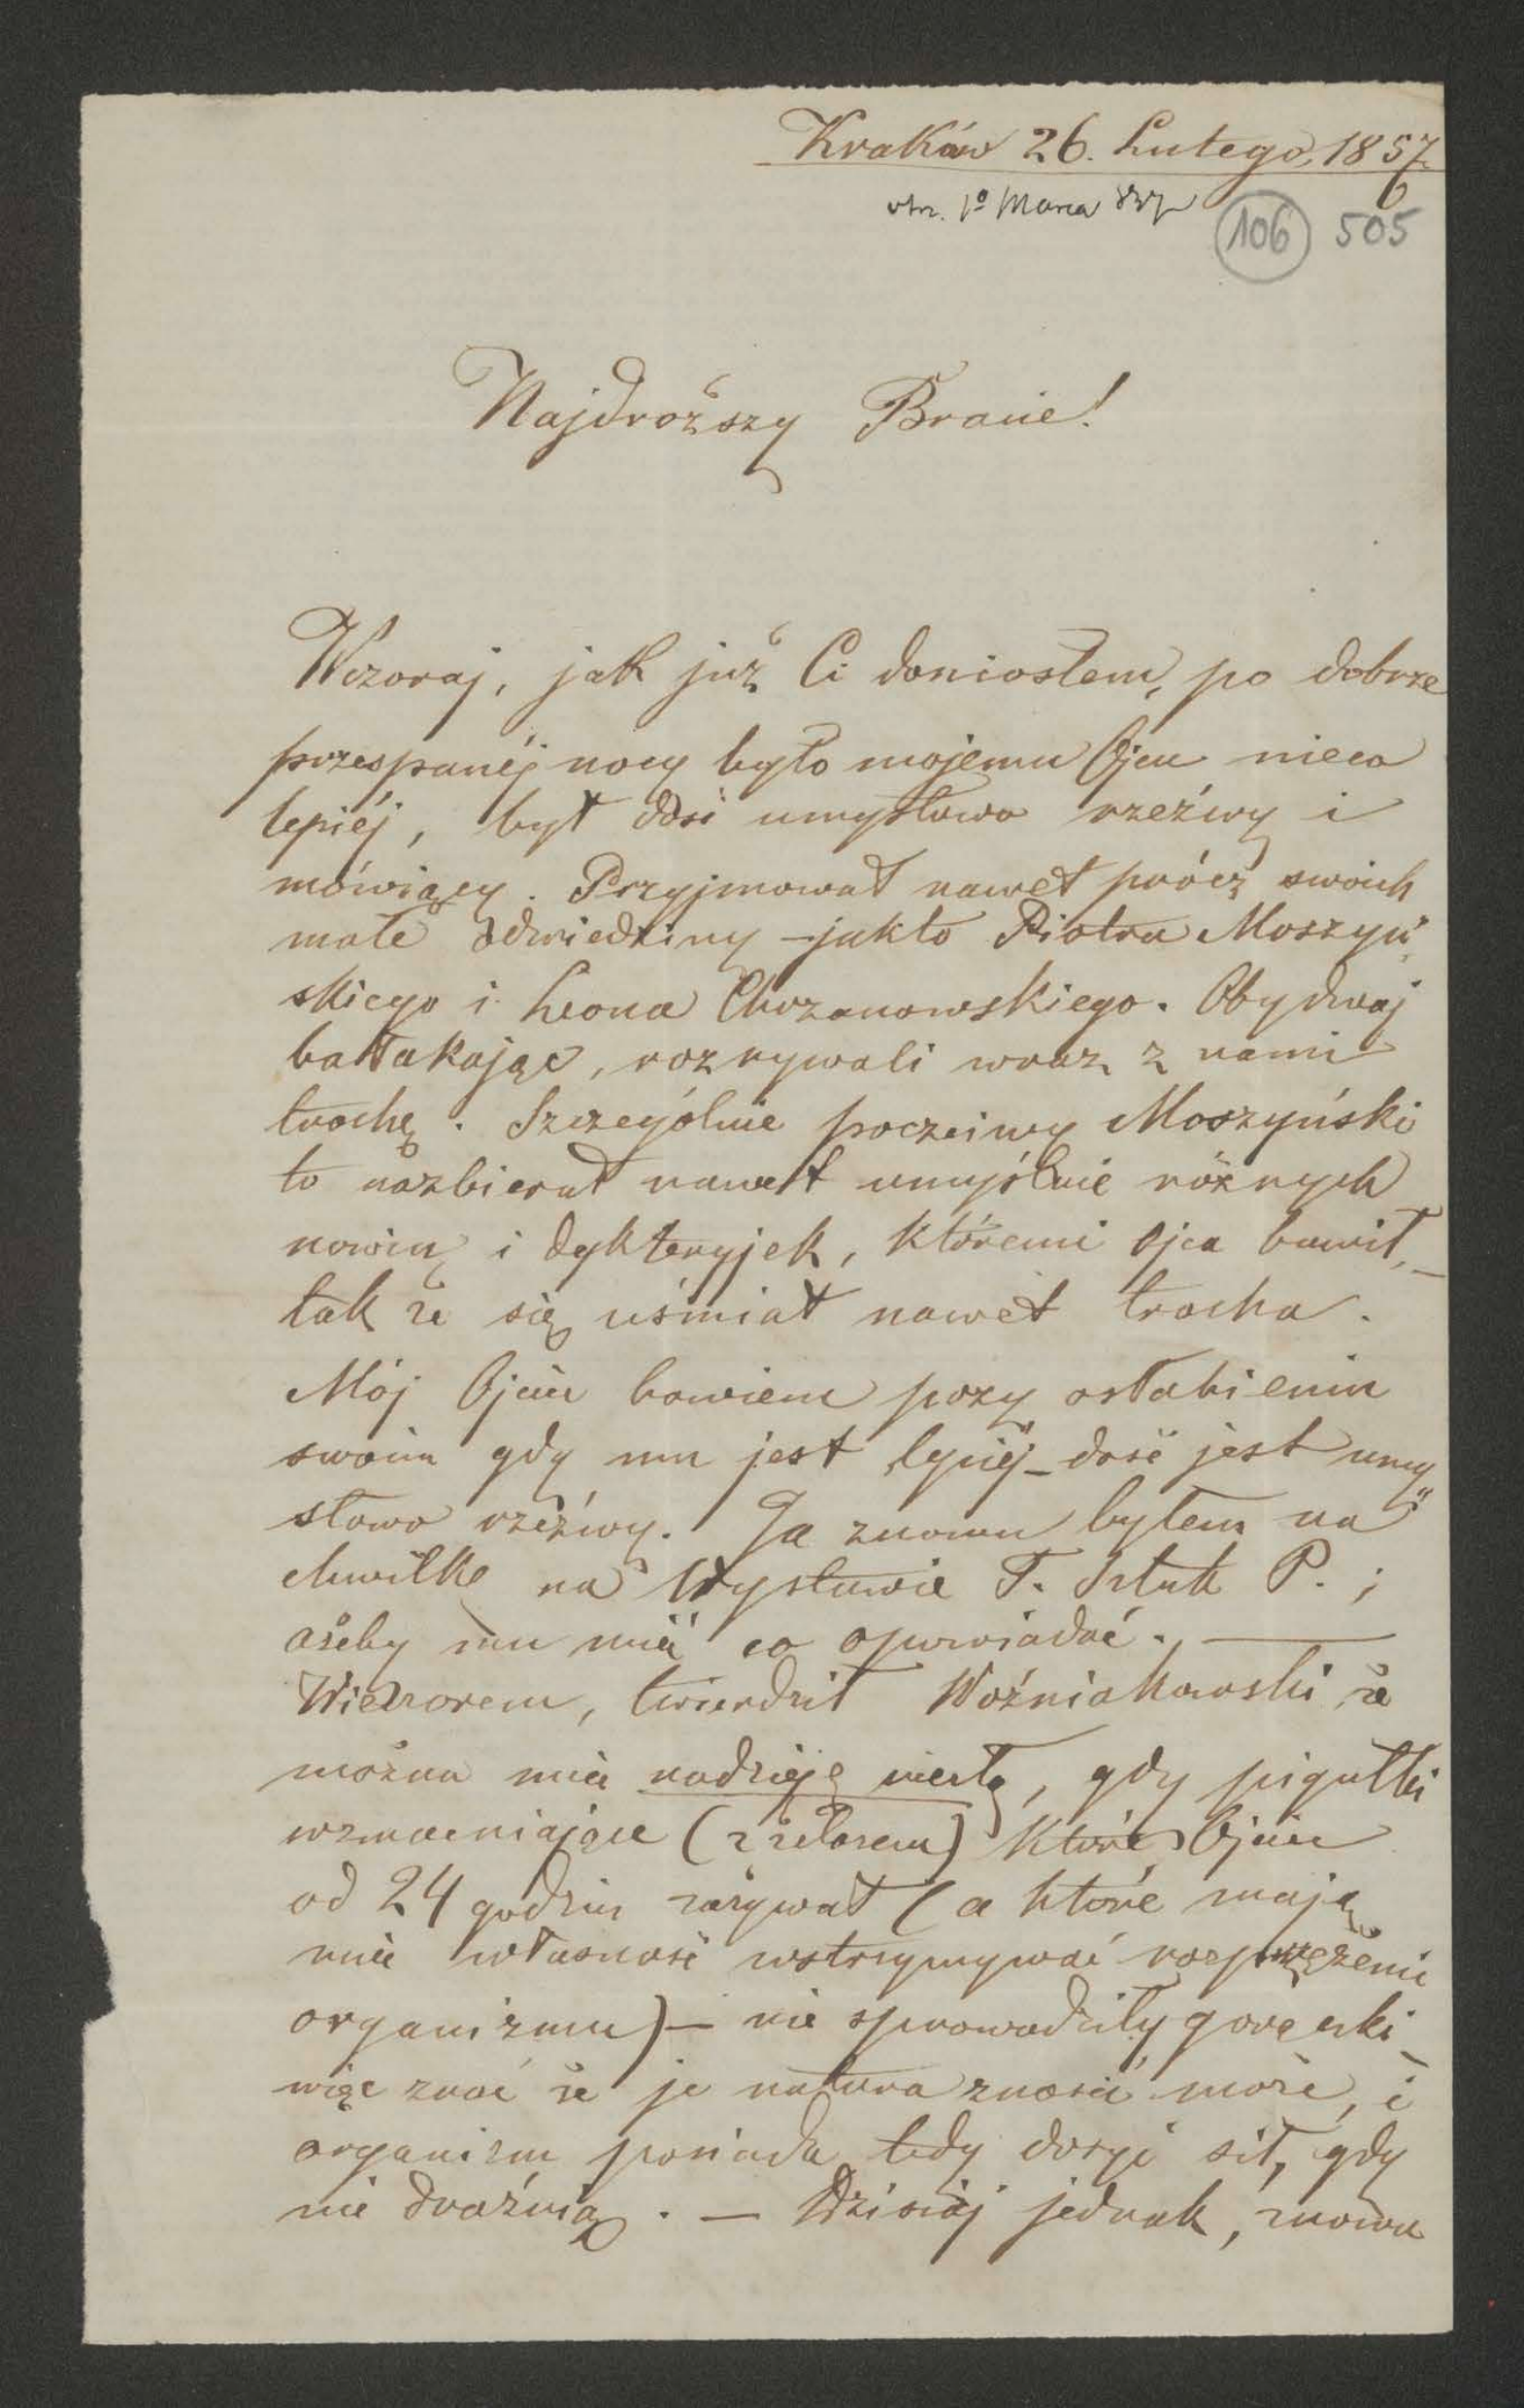 Kraków 26. Lutego, 1857.
otrz. 1º Marca 857
106 505
Najdroższy Bracie!
Wczoraj, jak już Ci doniosłem, po dobrze
przespanéj nocy było mojemu Ojcu nieco
lepiéj, był dosć umysłowo rzeźwy i
mówiący. Przyjmował nawet prócz swoich
małe odwiedziny – jakto Piotra Moszyń„
skiego i Leona Chrzanowskiego. Obydwaj
bałakając, rozrywali wraz z nami
trochę. Szczególnie poczciwy Moszyński
to nazbierał nawet umyślnie różnych
nowin i dykteryjek, któremi Ojca bawił, –
tak że się uśmiał nawet trocha.
Mój Ojciec bowiem przy osłabieniu
swoim gdy mu jest lepiéj – dosć jest umy„
słowo rzeźwy. Ja znowu byłem na
chwilkę na Wystawie T. Sztuk P. ;
ażeby mu mieć co opowiadać. —
Wieczorem, twierdził Woźniakowski że
można mieć nadzieję, gdy pigułki
wzmacniające (z żelazem) które Ojciec
od 24 godzin zażywał (a które mają
mieć własność wstrzymywać rozprzężenie
organizmu) – nie sprowadziły gorączki –
więc znać że je natura znosić może, i
organizm posiada tedy dosyć sił, gdy
nie drażnią. — Dzisiaj jednak, znowu